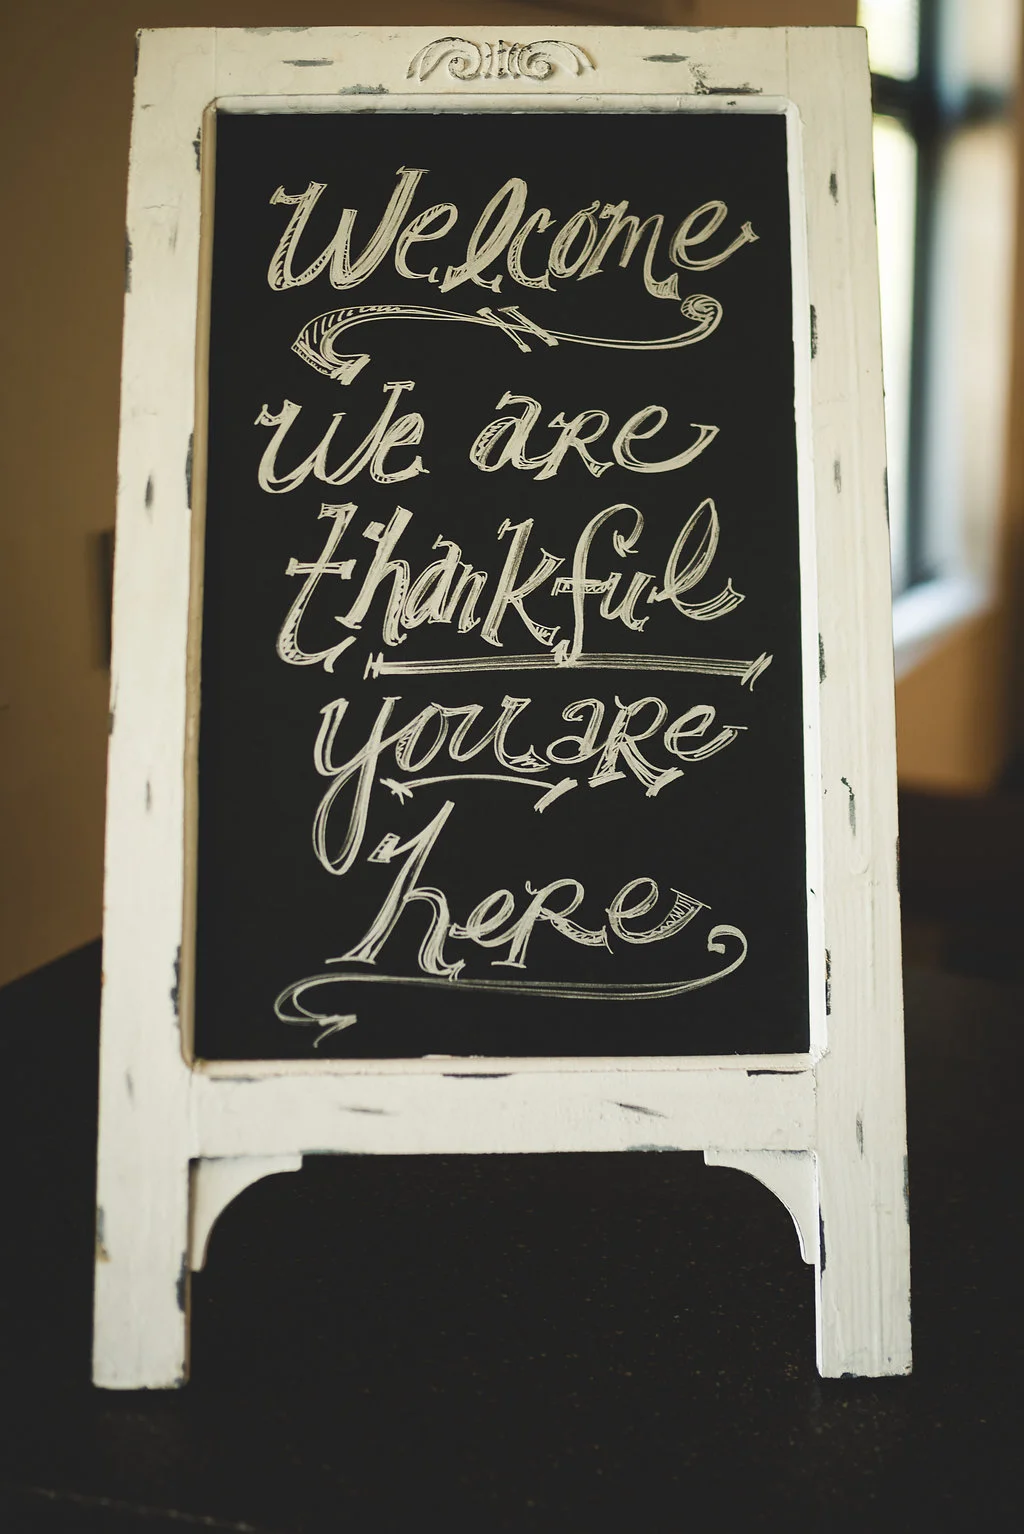 Welcome
We are
thankful
you are
here